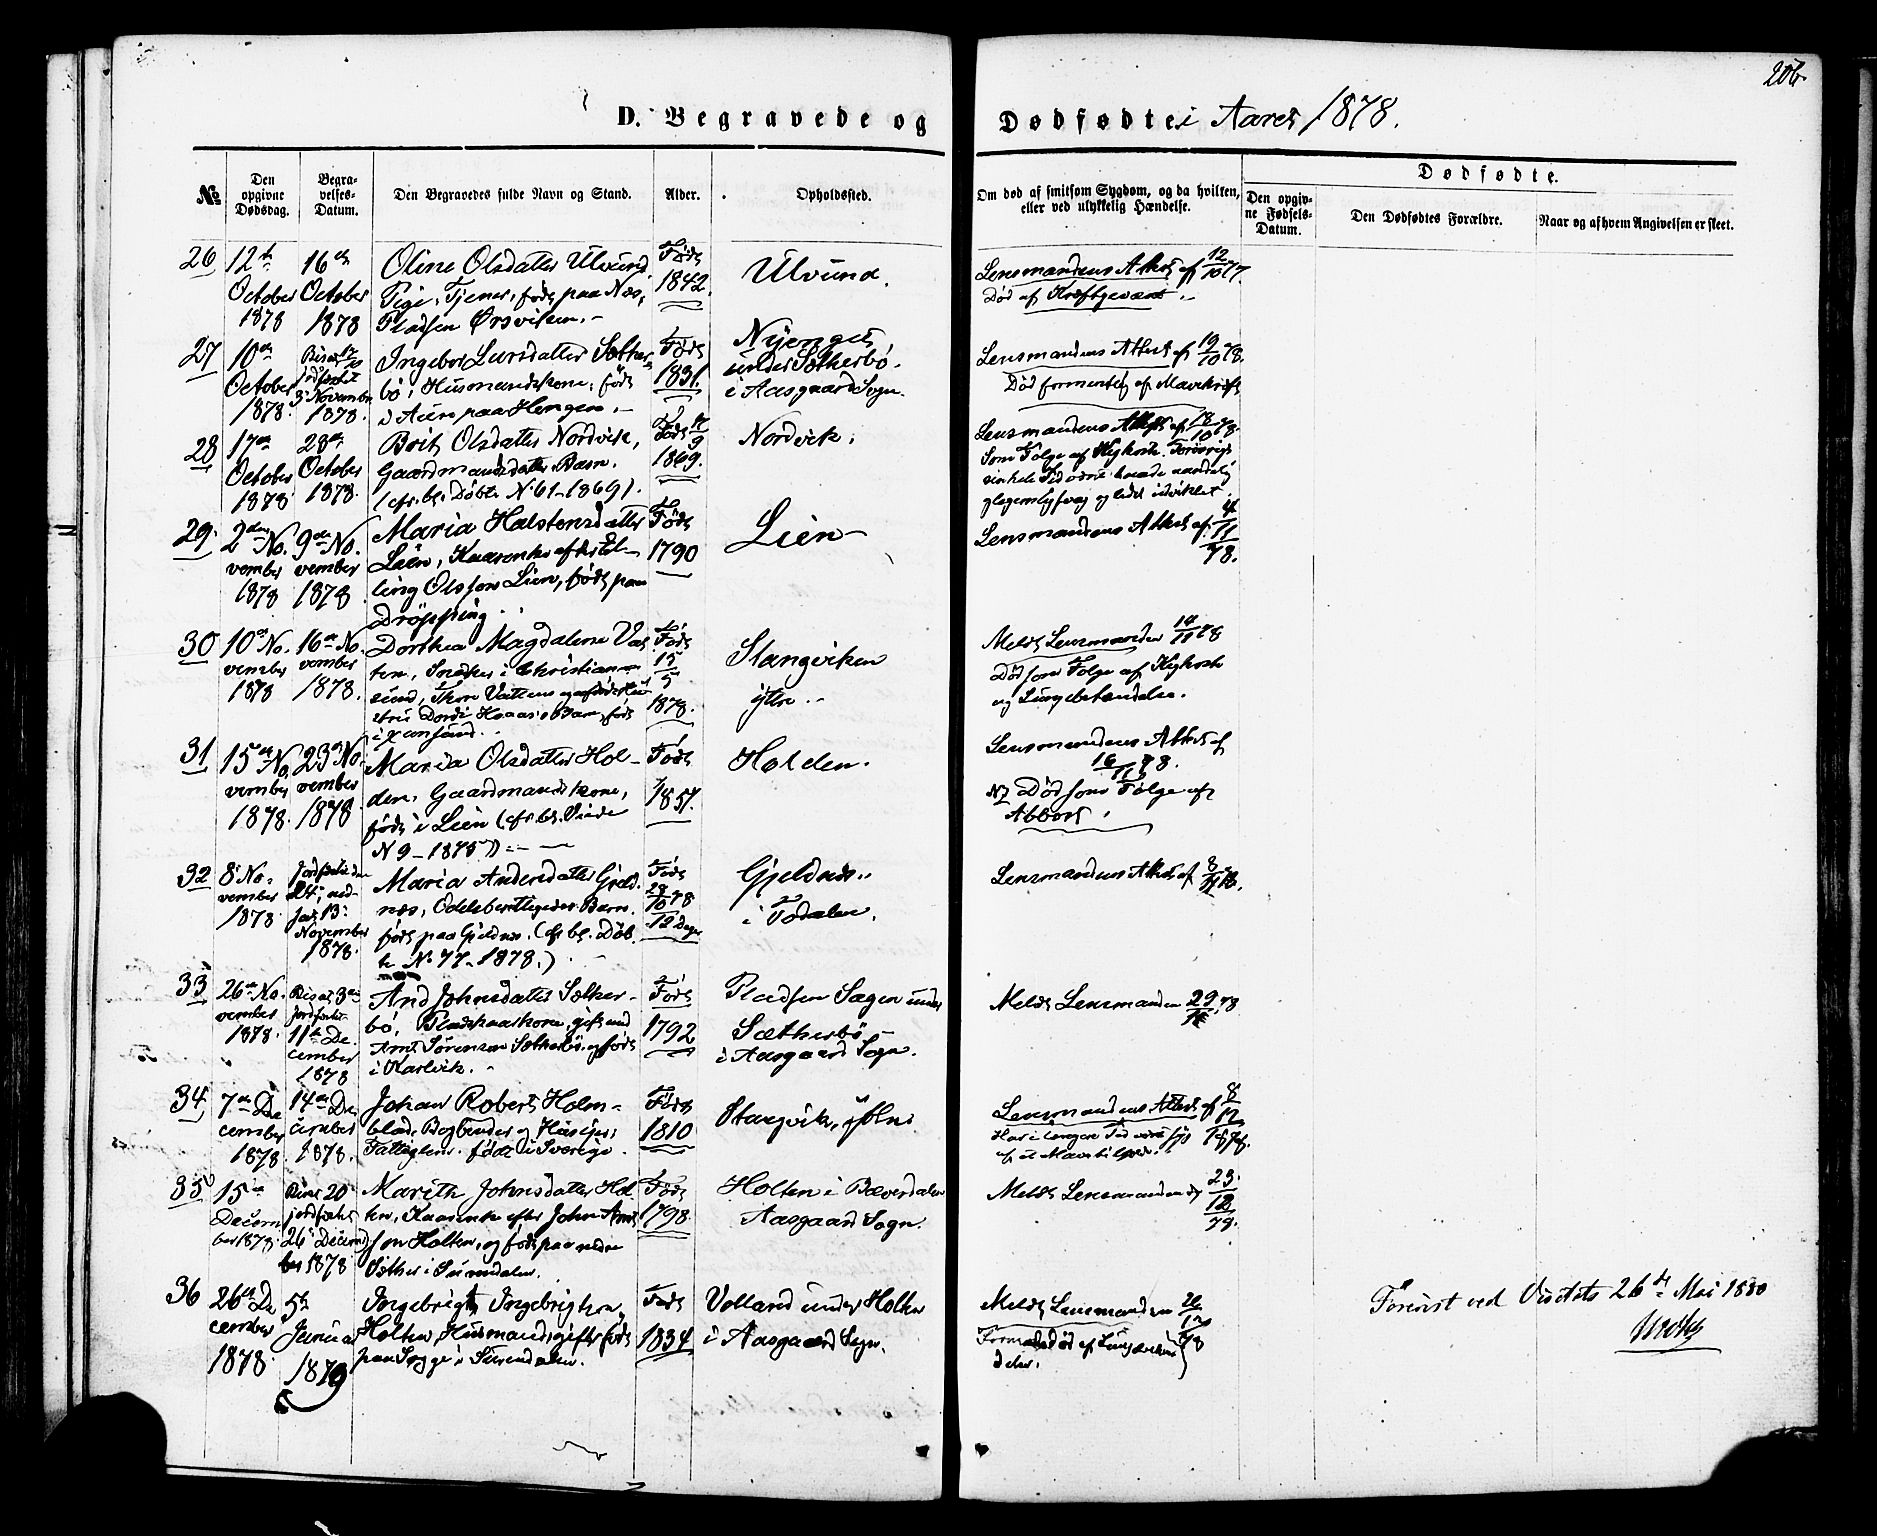 206.
D. Begravede og Dødfødte i Aaret 1878.
No
Den opgivne Dødsdag.
Begravelses-Datum.
Den Begravedes fulde Navn og Stand.
Alder.
Opholdssted.
Om død af smitsom Sygdom, og da hvilken, eller ved ulykkelig Hændelse.
Dødfødte.
Den opgivne Fødsels-Datum.
Den Dødfødtes Forældre.
Naar og af hvem Angivelsen er skeet.
26
12te October 1878
16de October 1878
Oline Olsdatter Ulvund,
Pige, Tjener, født paa Næs,
Pladsen Ørsviken.
Født 1842.
Ulvund.
Lensmandens Attest af 12/10 77.
Død af
27
10de October 1878.
3 November 1878.
Ingebor Larsdatter Sæther-
bø, Husmandskone, født
i Aien paa Hengen.
Født 1831.
Nyenget
under Sætherbø
i Aasgaard Sogn.
Lensmandens Attest af 19/10 78.
Død formentlig af Mavekræft
28
17de October 1878.
28de October 1878.
Brit Olsdatter Nordvik,
Gaardmandsdatter, Barn.
(cfr. bl. Døbte No 61-1869).
Født 1869.
Nordvik.
Lensmandens Attest af 18/10 78.
Som Følge af Kighoste.
29.
2den November 1878
9de November 1878
Maria Halstensdatter
Lien, Kaarenke efter
Olsson Lien, født paa
Dröpping
Født 1790
Lien
Lensmandens Attest af 4/11 78.
30
10de November 1878
16de November 1878.
Dorthea Magdalene Vat-
ten, i Christian-
sund, Thore Vattens og
Dordi Haaas's Barn, født
i Xansund.
Født 15/5 1878.
Stangviken
ytre
Meldt Lensmanden 14/11 78
Død som Følge af Kighoste
og Lungebetændelse.
31
15de November 1878.
23de November 1878
Maria Olsdatter Hol-
den, Gaardmandskone,
født i Lien (cfr. bl. Viede
N 9-1875)
Født 1851.
Holden.
Lensmandens Attest af
16/11 78.
Død som Følge af
Abbort.
32
8 November 1878
13 November 1878.
Maria Andersdatter Gjeld-
næs, Barn.
født paa Gjeldnæs. (cfr bl. Døb-
te No 77-1878.)
Født 28/10 78
12 Dage
Gjeldnæs
i Todalen.
Lensmandens Attest af 8/11 78.
33
26de November 1878.
11te December 1878
And Johnsdatter Sæther-
bø, gift med
Arnt Sörensen Sætherbø, født
i Karlvik.
Født 1792
Pladsen Sagen under
Sætherbø
i Aasgaard Sogn.
Meldt Lensmanden 29/11 78
34
7de December 1878
14de December 1878.
Johan Robert Holm-
blad, Bogbinder og
Fattiglem. født i Sverige.
Født 1810
Stangvik,
Lensmandens Attest af 8/12 1878.
Har i længere Tid været syg
35
15de December 1878
26 December 1878
Marith Johnsdatter Hol-
ten, Kaarenke efter John Arnt-
son Holten, og født paa nedre
Sæther i Surendalen.
Født 1798.
Holten i Bæverdalen
Aasgaard Sogn.
Meldt Lensmanden 23/12 78.
36
26de December 1878
5te Januar 1879
Ingebrigt Ingebrigtsen
Holten, Husmand, gift, født
paa Sogge i Surendalen.
Født 1834
Volland under Holten
i Aasgaard Sogn.
Meldt Lensmanden 78
Formodet død af
Forevist ved Visitats 26de Mai 1880